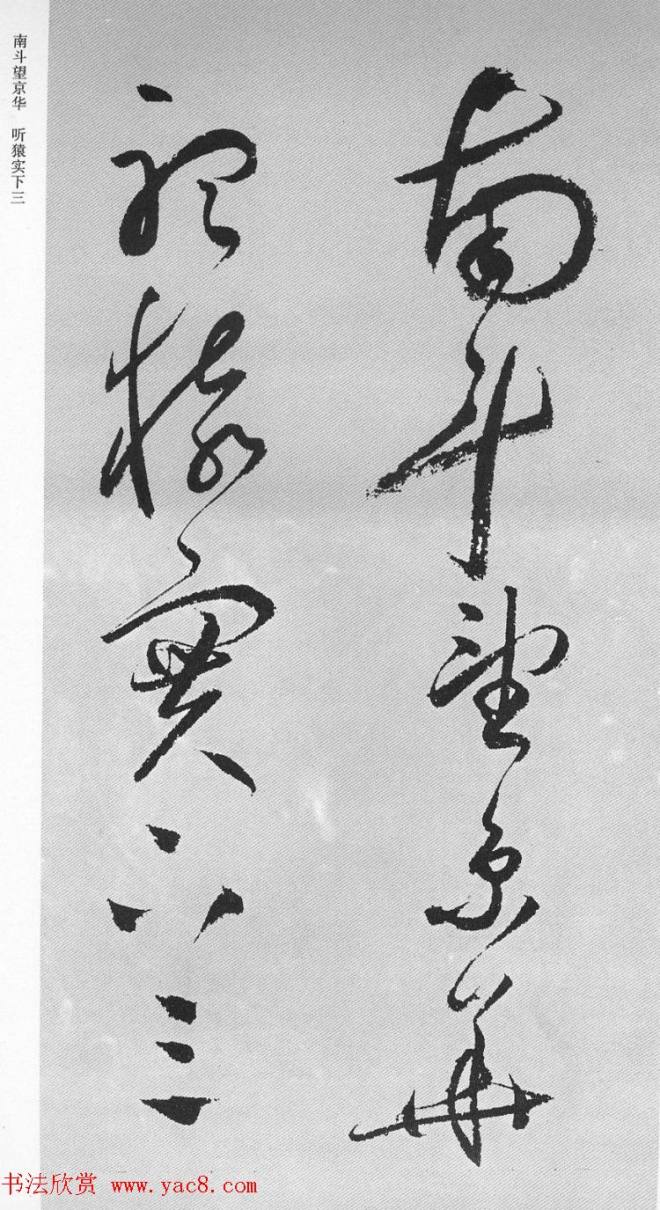 南斗望京華
聽猿實下三
南斗望京华 听猿实下三
书法欣赏 www.yac8.com